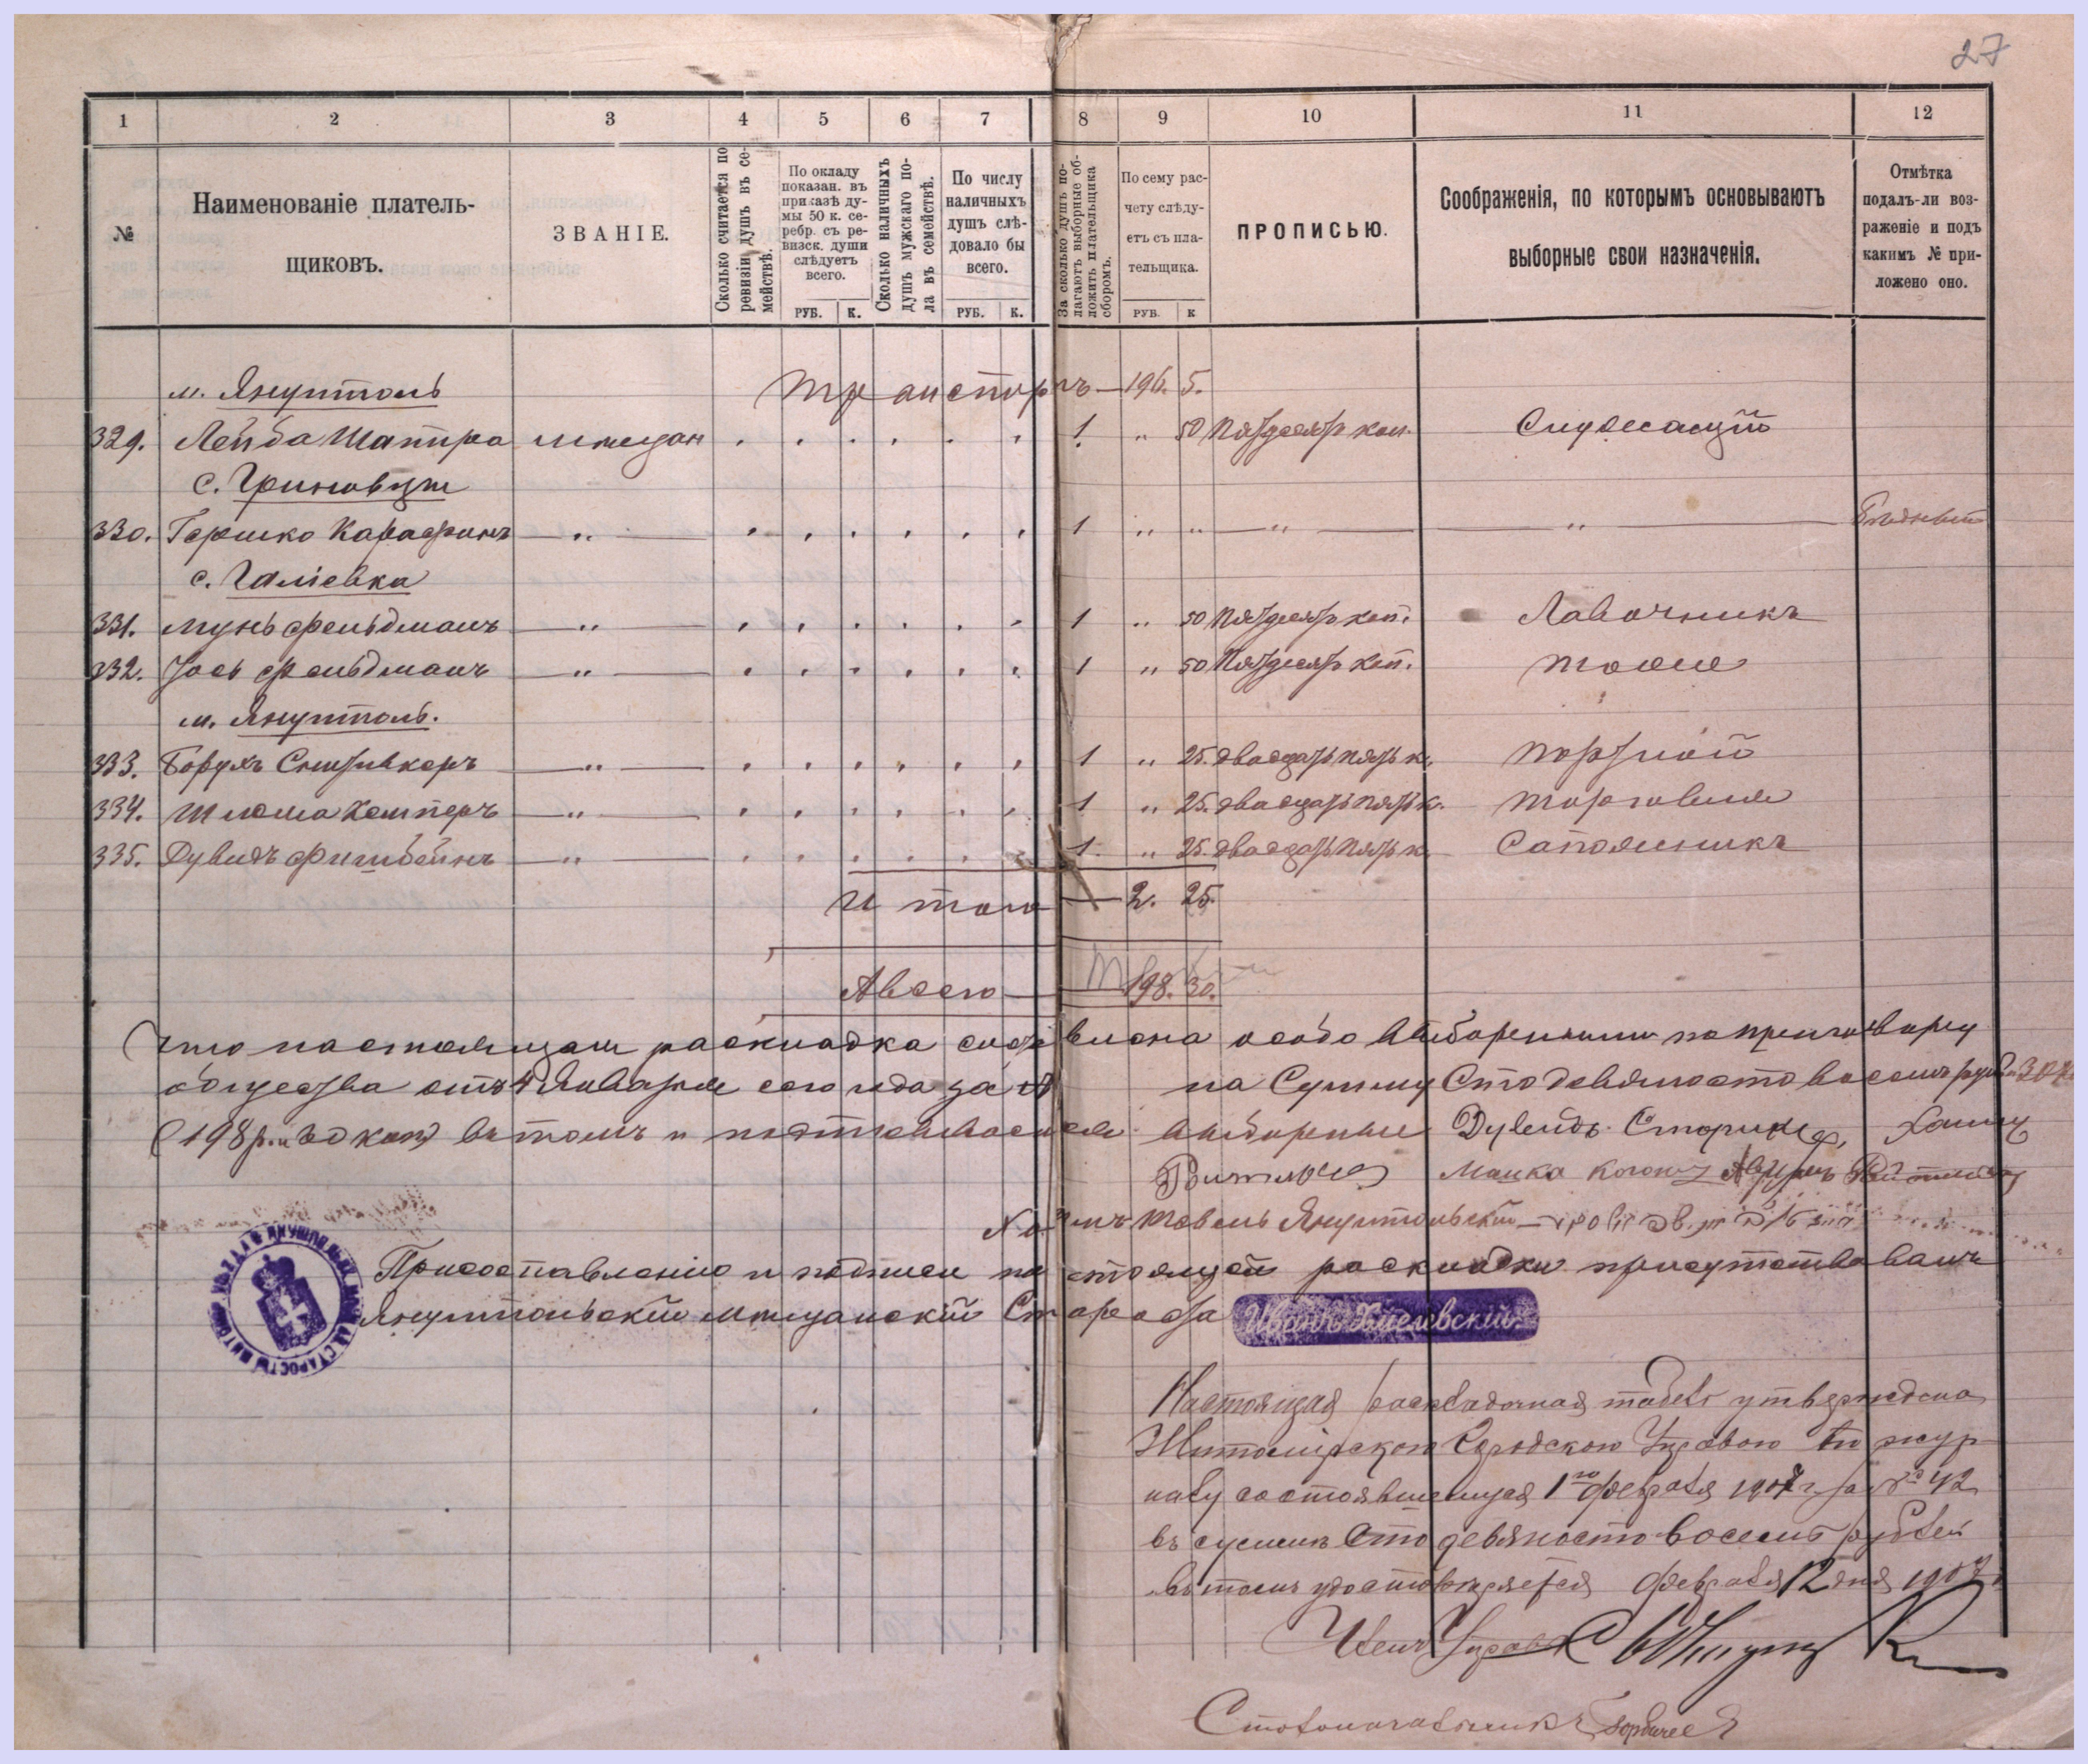 27
1 2 3 4 5 6 7 8 9 10 11 12
№
Наименованіе платель-
щиковъ.
ЗВАНІЕ.
Сколько считается по
ревизіи душъ въ се-
мействѣ.
По окладу
показан. въ
приказѣ ду-
мы 50 к. се-
ребр. съ ре-
визск. души
слѣдуетъ
всего.
РУБ. К.
Сколько наличныхъ
душъ мужскаго по-
ла въ семействѣ.
По числу
наличныхъ
душъ слѣ-
довало бы
всего.
РУБ. К.
За сколько душъ по-
лагаютъ выборные об-
ложить плательщика
сборомъ.
По сему рас-
чету слѣду-
етъ съ пла-
тельщика.
РУБ. К
ПРОПИСЬЮ.
Соображенія, по которымъ основываютъ
выборные свои назначенія.
Отмѣтка
подалъ-ли воз-
раженіе и подъ
какимъ № при-
ложено оно.
м. Янушполь Транспортъ — 196. 5.
329. Лейба Шапира мѣщан 1 „ 50 Пятдесятъ коп. Служащій
с. Гриновцы
330. Гершко „ 1 „ „ „ „ Бѣдный
с. Галіевка
331. Мунь Фельдманъ „ 1 „ 50 Пятдесятъ коп. Лавочникъ
332. Іось Фельдманъ „ 1 „ 50 Пятдесятъ коп. тоже
м. Янушполь.
333. Борухъ „ 1 „ 25. двадцать пять к. портной
334. Шлема „ 1 „ 25. двадцать пять к. торговля
335. Дувидъ Фишбейнъ „ 1 „ 25. двадцать пять к. Сапожникъ
Итого — 2. 25.
А всего — 198. 30.
Что настоящая раскладка составлена особо выборенными по приговору
общества отъ 4 Января сего года за № на Сумму Сто девяносто восемь руб. 30 к.
(198 р. и 30 коп) въ томъ и подписываемся выборные Дувидъ Хаимъ
Мошка
Товель Янушпольскій
При составленіи и подписи настоящей раскладки присутствовалъ
Янушпольскій мѣщанскій Староста Иванъ Хмелевскій.
Настоящая раскладочная табель утверждена
Житомірскою Городскою Управою по жур-
налу состоявшемуся 1го февраля 1907 г. за № 42
въ суммѣ Сто девяносто восемь рублей
въ томъ удостовѣряется февраля 12 дня 1907 г.
Членъ Управы
Столоначальникъ